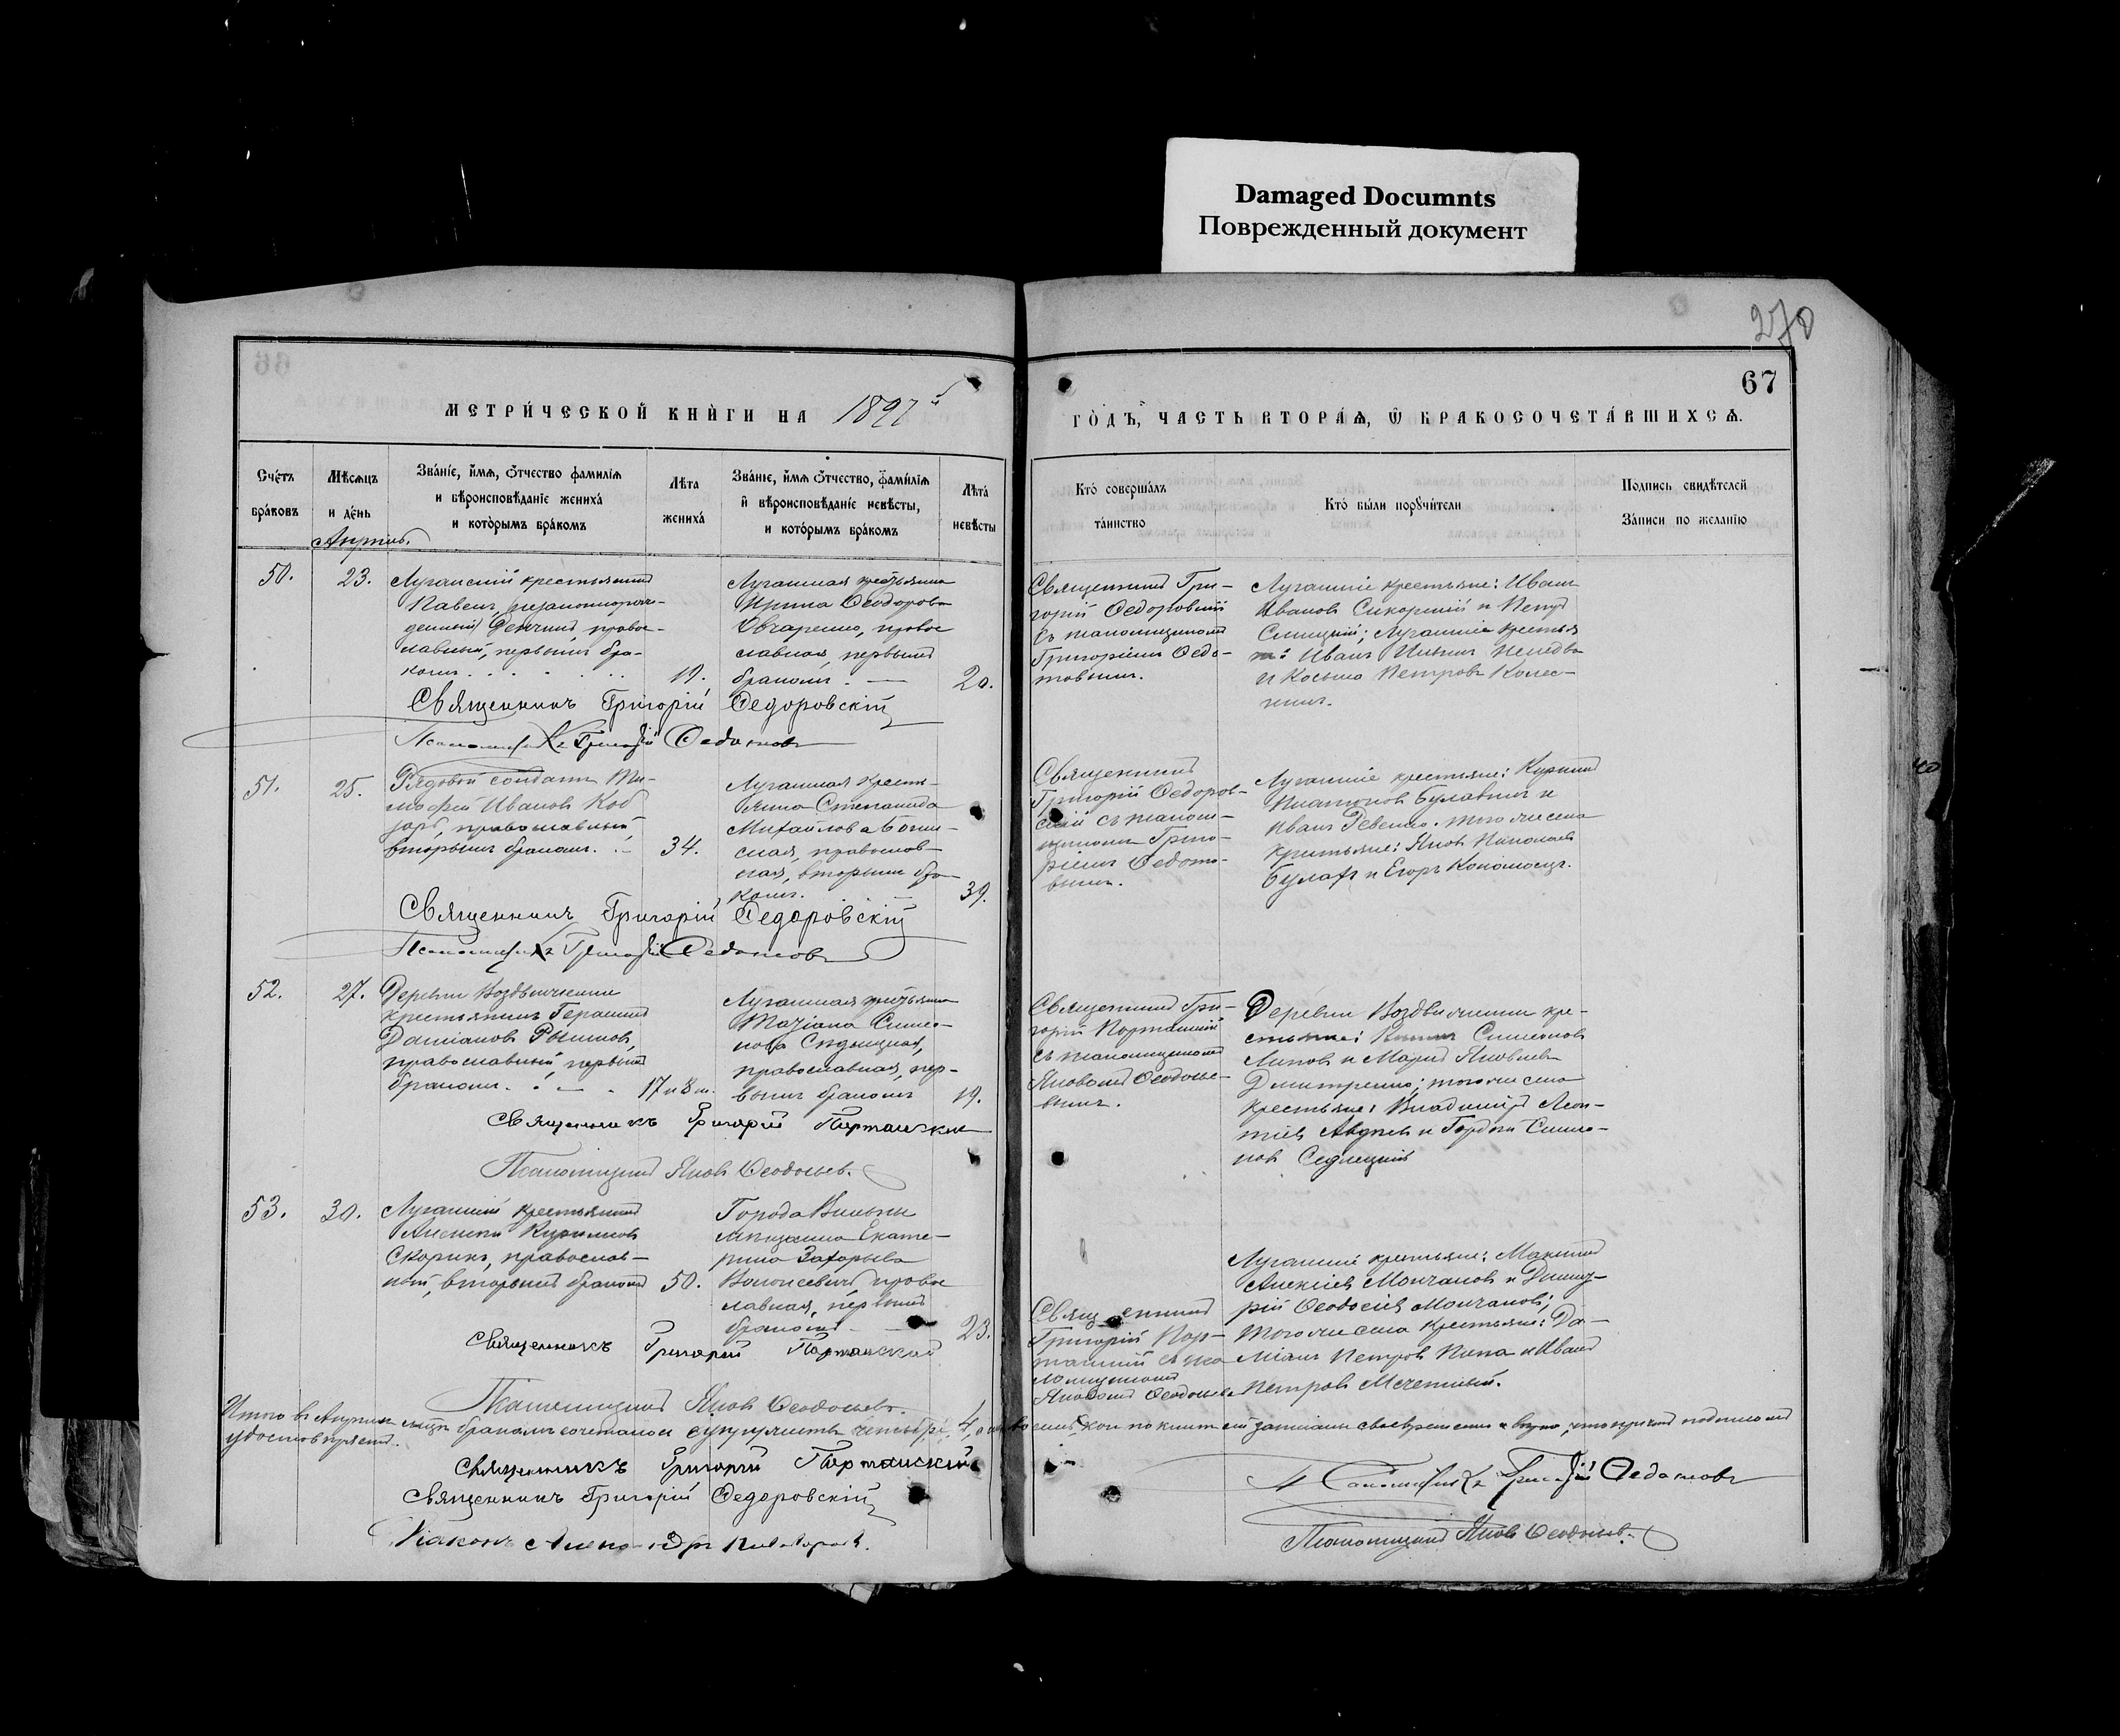 Damaged Documnts
Поврежденный документ
270
67
МЕТРИ́ЧЕСКОЙ КНИ́ГИ НА 1897й
ГО́ДЪ, ЧАСТЬ ВТОРА́Ѧ, Ѽ БРАКОСОЧЕТА́ВШИХСѦ.
Сче́тъ
бра́ковъ
Мѣ́сѧцъ
и де́нь
Зва́нїе, и́мѧ, ѻ́тчество фами́лїѧ
и вѣроисповѣ́данїе жениха̀
и кото́рымъ бра́комъ
Лѣ́та
жениха̀
Зва́нїе, и́мѧ ѻ́тчество, фами́лїѧ
и҆ вѣроисповѣ́данїе невѣ́сты,
и кото́рымъ бра́комъ
Лѣ́та
невѣ́сты
Кто̀ соверша́лъ
та́инство
Кто̀ бы́ли порꙋчи́тели
Подпись свидѣ́телей
За́писи по жела́нїю
Апрѣль.
50.
23.
Луганскій крестьянинъ
Павелъ, незаконнорож-
денный Демчинъ, правос-
лавный, первымъ бра-
комъ
19.
Луганская крестьянка
Ирина Ѳеодорова
Овчаренко, правос
лавная, первымъ
бракомъ.
20.
Священникъ Гри-
горій Ѳедоровскій
съ псаломщикомъ
Григоріемъ Ѳедо-
товымъ.
Луганскіе крестьяне: Иванъ
Ивановъ Сикорскій и Петръ
Слицкій; Луганскіе крестья
не: Иванъ
и Косьма Петровъ Колес-
никъ.
Священникъ Григорій Ѳедоровскій
Псаломщикъ Григорій Ѳедотовъ
51.
25.
Рядовой солдатъ Ти-
моѳей Ивановъ Коб
зарь, православный,
вторымъ бракомъ.
34.
Луганская кресть-
янка Степанида
Михайлова
ская, православ-
ная, вторымъ бра
комъ.
39.
Священникъ
Григорій Ѳедоров-
скій съ псалом-
щикомъ Григо-
ріемъ Ѳедото-
вымъ.
Луганскіе крестьяне: Кириллъ
Платоновъ Булавинъ и
Иванъ Ревенко. того же села
крестьяне: Яковъ Николаевъ
Булахъ и Егоръ Коломоецъ.
Священникъ Григорій Ѳедоровскій
Псаломщикъ Григорій Ѳедотовъ
52.
27.
Деревни Воздвиженки
крестьянинъ Герасимъ
Даміановъ
православный, первымъ
бракомъ.
17 и 8 м.
Луганская крестьянка
Татіана Симео-
нова Сѣдлецкая,
православная, пер-
вымъ бракомъ
19.
Священникъ Гри-
горій Портанскій
съ псаломщикомъ
Яковомъ Ѳеодосье-
вымъ.
Деревни Воздвиженки кре-
стьяне: Симеоновъ
Липовъ и Марко Яковлевъ
Дмитренко; того же села
крестьяне: Владиміръ Леон-
тіевъ Авдѣевъ и Гордѣй Симео-
новъ Седлецкій
Священникъ Григорій Портанскій
Псаломщикъ Яковъ Ѳеодосьевъ.
53.
30.
Луганскій крестьянинъ
Алексѣй Кирилловъ
Скорикъ, православ-
ный, вторымъ бракомъ
50.
Города Вильны
мѣщанка Екате-
рина Захарьева
Волосевичъ, правос
лавная, первымъ
бракомъ
23.
Священникъ
Григорій Пор-
танскій съ пса
ломщикомъ
Яковомъ Ѳеодосьев
Луганскіе крестьяне: Максимъ
Алексѣевъ Молчановъ и Димит-
рій Ѳеодосіевъ Молчановъ;
того же села крестьяне: Да-
міанъ Петровъ Липа и Иванъ
Петровъ Мечетный.
Священникъ Григорій Портанскій
Псаломщикъ Яковъ Ѳеодосьевъ.
Итого въ Апрѣлѣ мѣсяцѣ бракомъ сочеталось супружествъ четыре, 4, кои по книгѣ сей записаны своевременно и вѣрно, что причтъ подписомъ
удостовѣряетъ.
Священникъ Григорій Портанскій
Священникъ Григорій Ѳедоровскій
Діаконъ
Псаломщикъ Григорій Ѳедотовъ
Псаломщикъ Яковъ Ѳеодосьевъ.